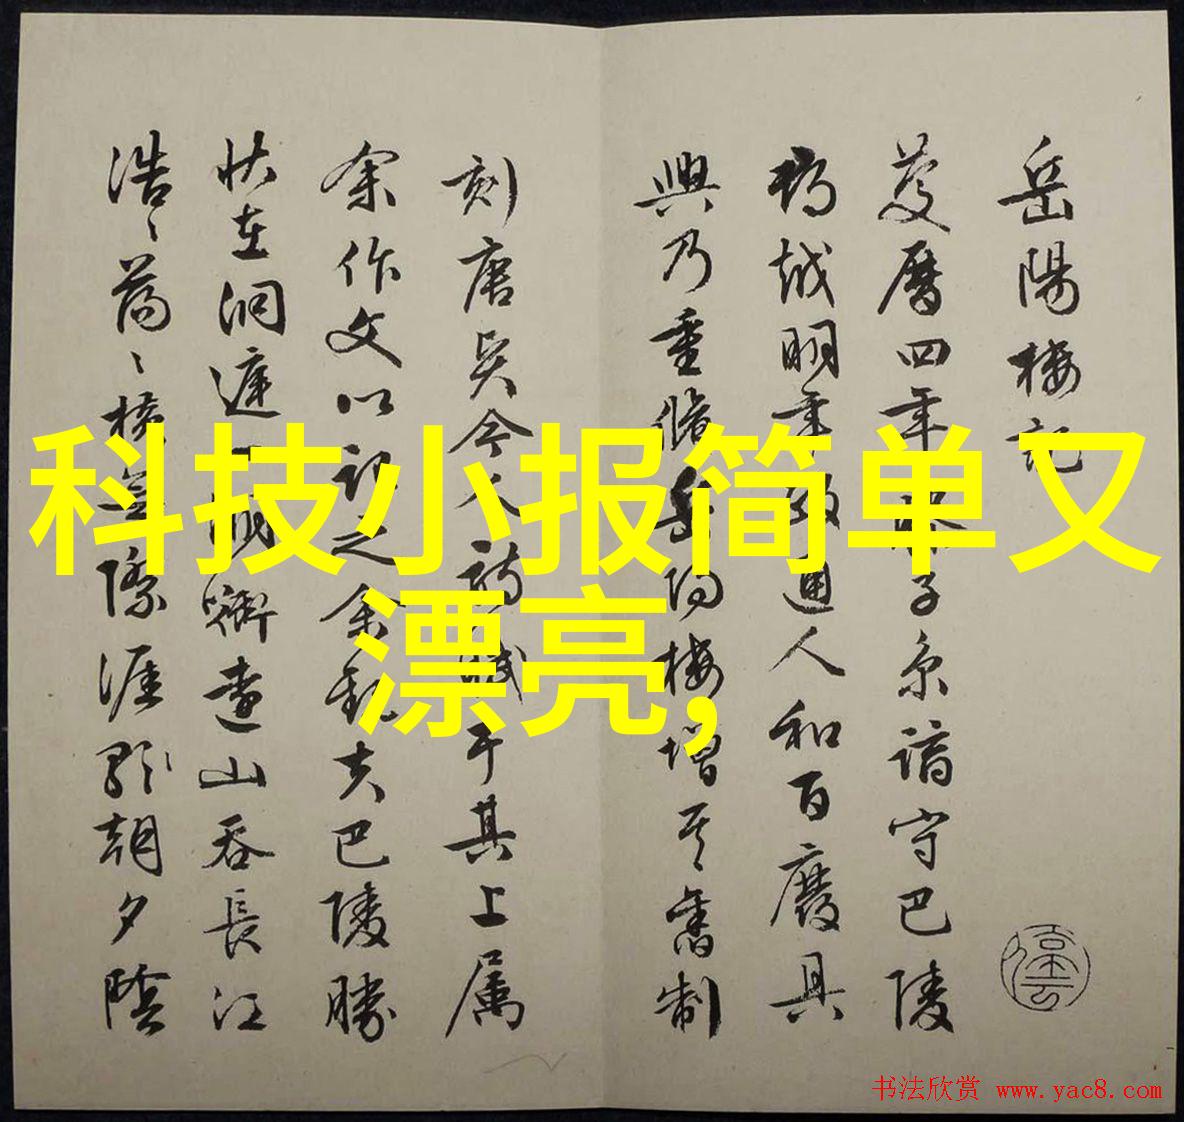 岳陽樓記
慶曆四年子京謫守巴陵
郡越明年政通人和百廢具
興乃重脩岳陽樓增其舊制
刻唐賢今人詩賦于其上属
余作文以記之余觀夫巴陵勝
状在洞庭一湖銜遠山吞長江
浩〻蕩〻橫無際涯朝夕陰
科技小报简单又
漂亮,
书法欣赏 www.yac8.com